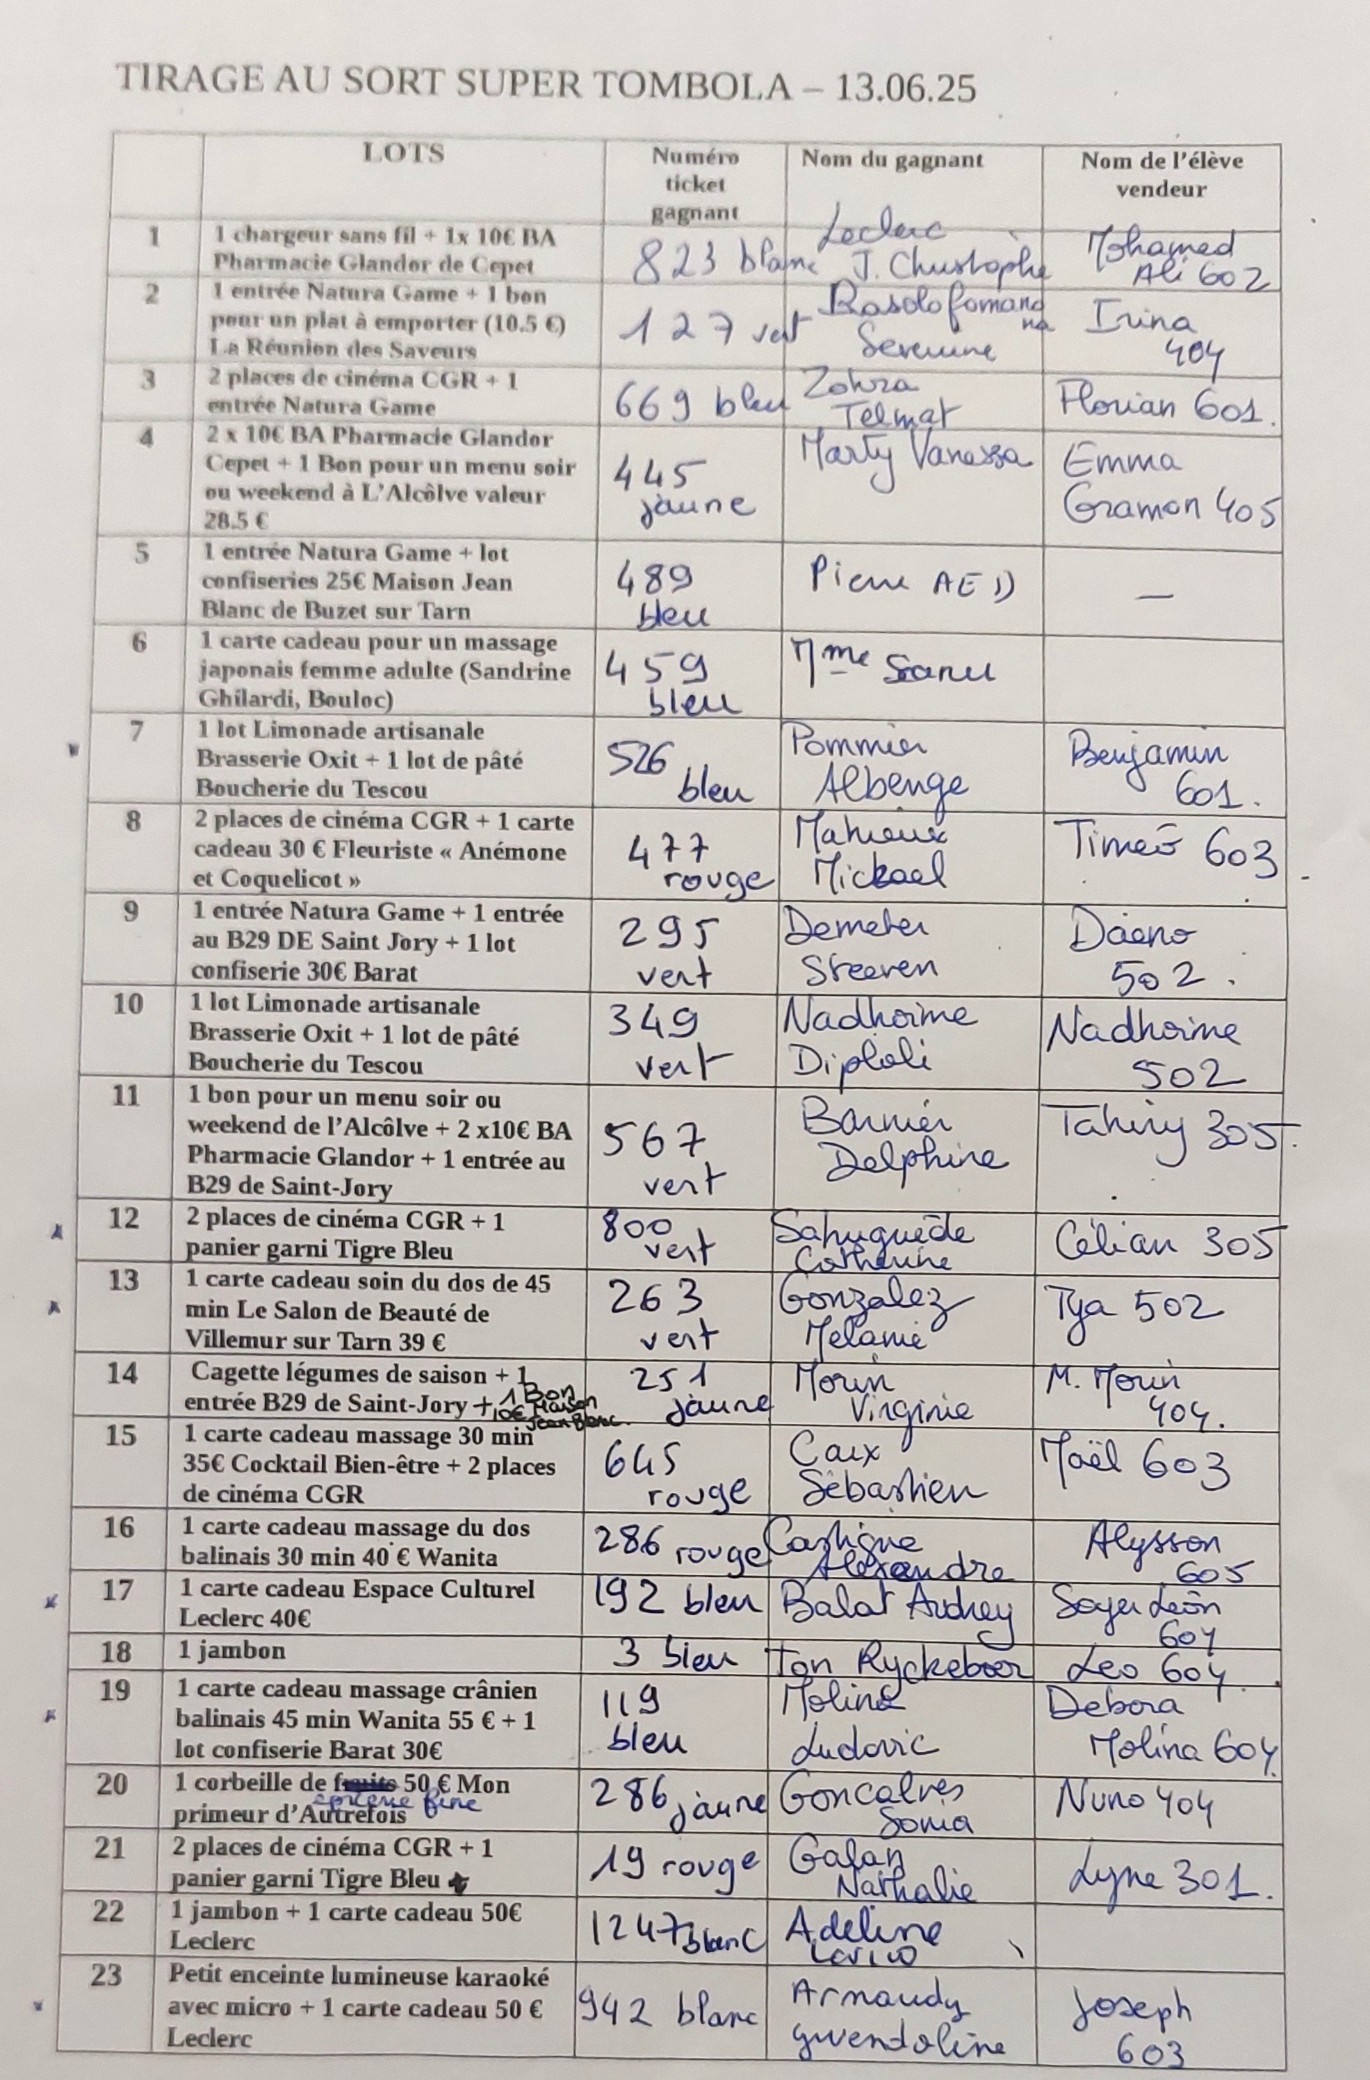 TIRAGE AU SORT SUPER TOMBOLA – 13.06.25
LOTS
Numéro
ticket
gagnant
Nom du gagnant
Nom de l'élève
vendeur
1
1 chargeur sans fil + 1x 10€ BA
Pharmacie Glandor de Cepet
823 blanc
Leclerc
J. Christophe
Mohamed
Ali 602
2
1 entrée Natura Game + 1 bon
pour un plat à emporter (10.5 €)
La Réunion des Saveurs
127 vert
Severine
Irina
404
3
2 places de cinéma CGR + 1
entrée Natura Game
669 bleu
Zohra
Telmat
Florian 601.
4
2 x 10€ BA Pharmacie Glandor
Cepet + 1 Bon pour un menu soir
ou weekend à L'Alcôlve valeur
28.5 €
445
jaune
Marty Vanessa
Emma
Gramon 405
5
1 entrée Natura Game + lot
confiseries 25€ Maison Jean
Blanc de Buzet sur Tarn
489
bleu
Pierre AED
—
6
1 carte cadeau pour un massage
japonais femme adulte (Sandrine
Ghilardi, Bouloc)
459
bleu
Mme
7
1 lot Limonade artisanale
Brasserie Oxit + 1 lot de pâté
Boucherie du Tescou
526
bleu
Pommier
Albenge
Benjamin
601.
8
2 places de cinéma CGR + 1 carte
cadeau 30 € Fleuriste « Anémone
et Coquelicot »
477
rouge
Mahieux
Mickael
Timéo 603
9
1 entrée Natura Game + 1 entrée
au B29 DE Saint Jory + 1 lot
confiserie 30€ Barat
295
vert
Demeter
Steeven
502.
10
1 lot Limonade artisanale
Brasserie Oxit + 1 lot de pâté
Boucherie du Tescou
349
vert
Nadhoime
Diploli
Nadhoime
502
11
1 bon pour un menu soir ou
weekend de l'Alcôlve + 2 x10€ BA
Pharmacie Glandor + 1 entrée au
B29 de Saint-Jory
567
vert
Barnier
Delphine
Tahiry 305.
12
2 places de cinéma CGR + 1
panier garni Tigre Bleu
800
vert
Sahuguède
Catherine
Célian 305
13
1 carte cadeau soin du dos de 45
min Le Salon de Beauté de
Villemur sur Tarn 39 €
263
vert
Gonzalez
Mélanie
Tya 502
14
Cagette légumes de saison + 1
entrée B29 de Saint-Jory + 1 Bon
10€ Maison
Jean Blanc.
251
jaune
Morin
Virginie
M. Morin
404.
15
1 carte cadeau massage 30 min
35€ Cocktail Bien-être + 2 places
de cinéma CGR
645
rouge
Caux
Sébastien
Maël 603
16
1 carte cadeau massage du dos
balinais 30 min 40 € Wanita
286 rouge
Castigne
Alexandre
Alysson
605
17
1 carte cadeau Espace Culturel
Leclerc 40€
192 bleu
Balat Audrey
Soyer Léon
604
18
1 jambon
3 bleu
Ton Ryckeboer
Leo 604
19
1 carte cadeau massage crânien
balinais 45 min Wanita 55 € + 1
lot confiserie Barat 30€
119
bleu
Molina
Ludovic
Debora
Molina 604
20
1 corbeille de fruits 50 € Mon
épicerie fine
primeur d'Autrefois
286 jaune
Goncalves
Sonia
Nuno 404
21
2 places de cinéma CGR + 1
panier garni Tigre Bleu
19 rouge
Galan
Nathalie
Lyne 301.
22
1 jambon + 1 carte cadeau 50€
Leclerc
1247 blanc
Adeline
23
Petit enceinte lumineuse karaoké
avec micro + 1 carte cadeau 50 €
Leclerc
942 blanc
Arnaudy
gwendoline
Joseph
603